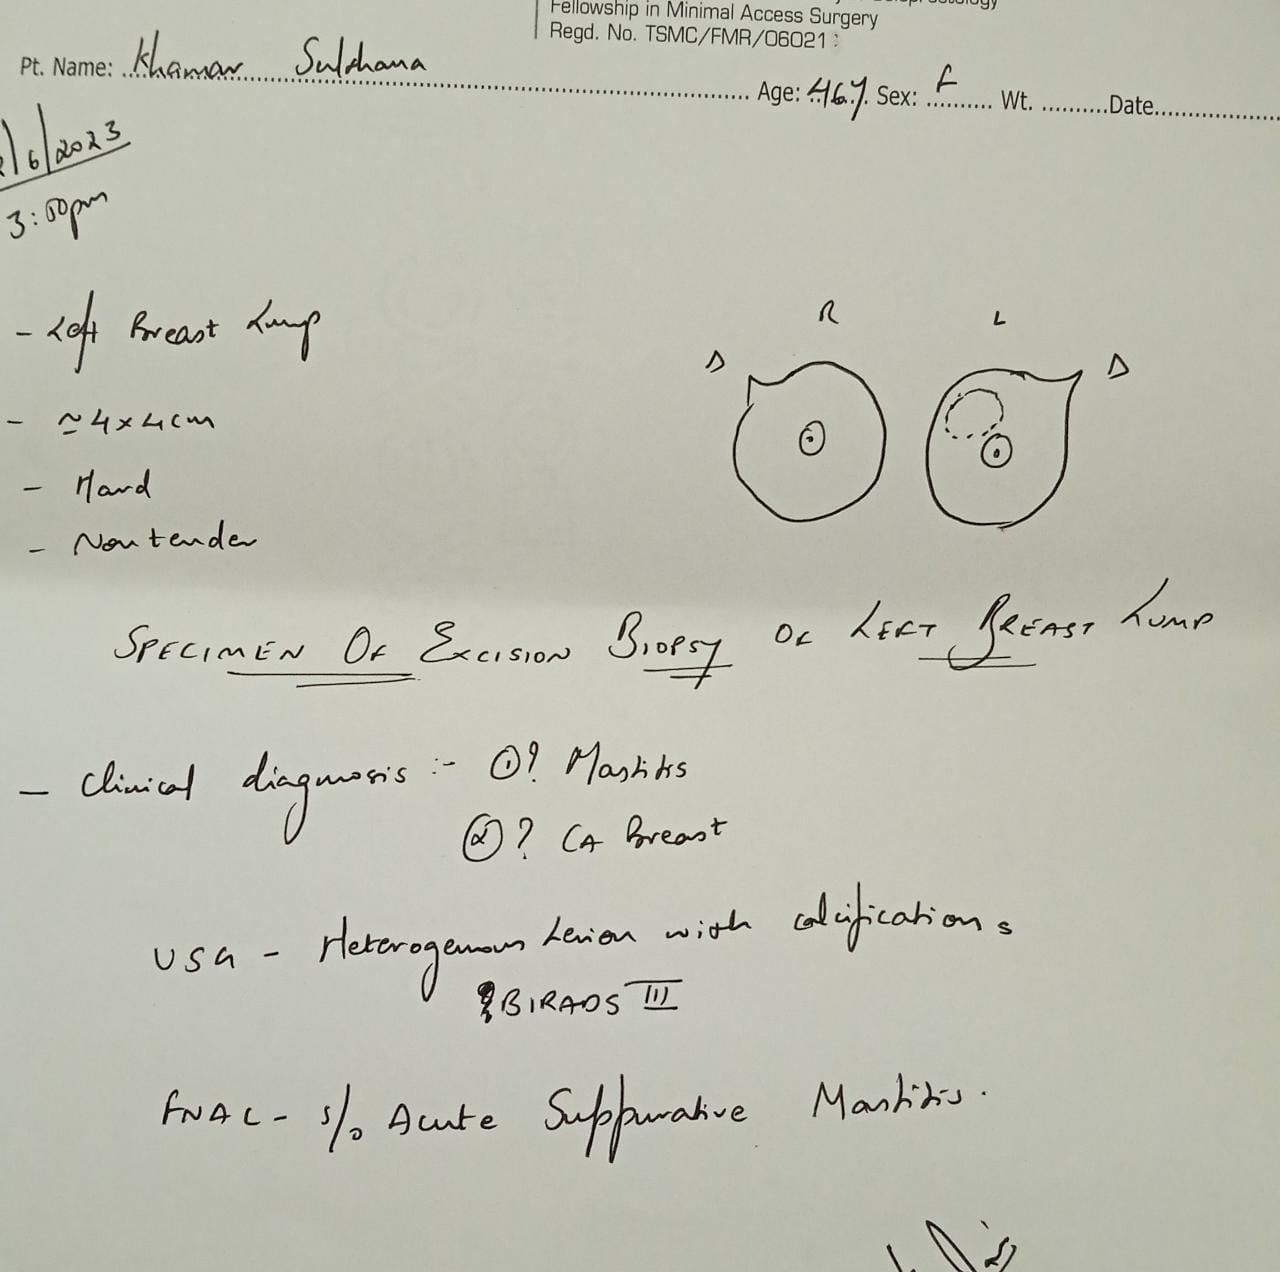 Fellowship in Minimal Access Surgery
Regd. No. TSMC/FMR/06021
Pt. Name: Khamar Sulthana Age: 46y Sex: F Wt. Date
/6/2023
3:00pm
- Left Breast Lump
- ≃ 4x4cm
- Hard
- Nontender
R L
SPECIMEN OF EXCISION BIOPSY OF LEFT BREAST LUMP
- Clinical diagnosis :- ①? Mastitis
②? CA Breast
USG - Heterogenous Lesion with calcifications
BIRADS III
FNAC - s/o Acute Suppurative Mastitis.